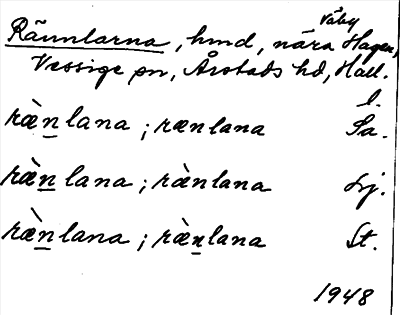 Väby
Rännlarna, hmd, nära Hagen,
Vessige sn, Årstads hd, Hall.
l.
ræ̀n̲lana ; rænlana Sa.
ræ̀n̲lana ; ræ̀nlana Lj.
ræ̀n̲lana ; ræ̀n̲lana St.
1948